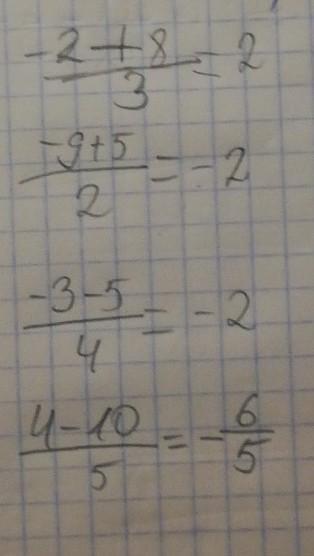 (-2+8)/3 = 2
(-9+5)/2 = -2
(-3-5)/4 = -2
(4-10)/5 = -6/5